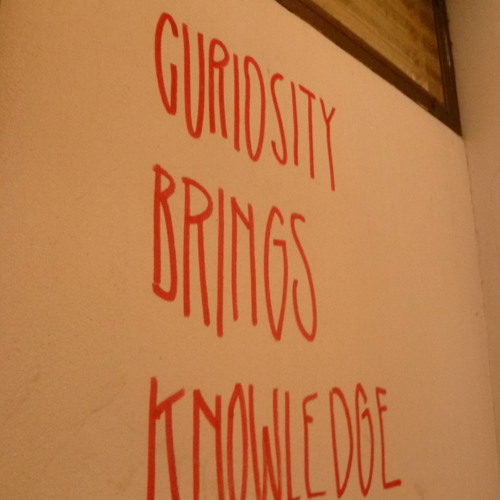 CURIOSITY
BRINGS
KNOWLEDGE